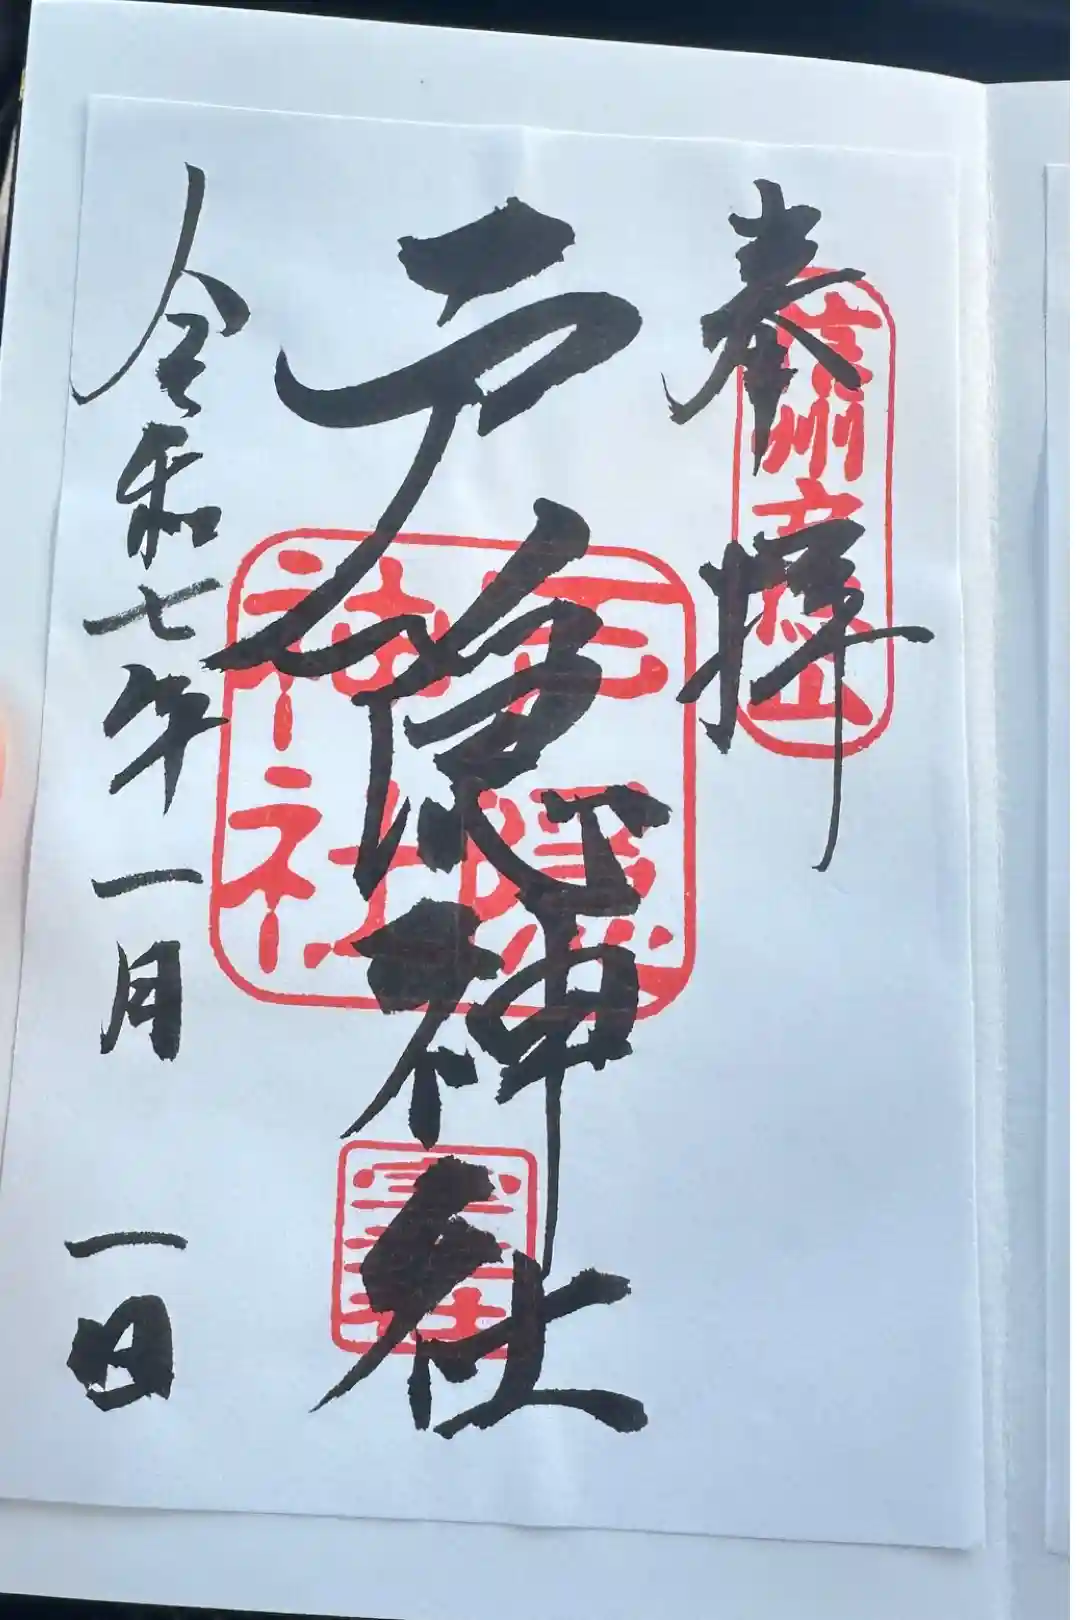 奉拝
信州戸隠山
戸隠神社
戸隠神社
令和七年一月一日